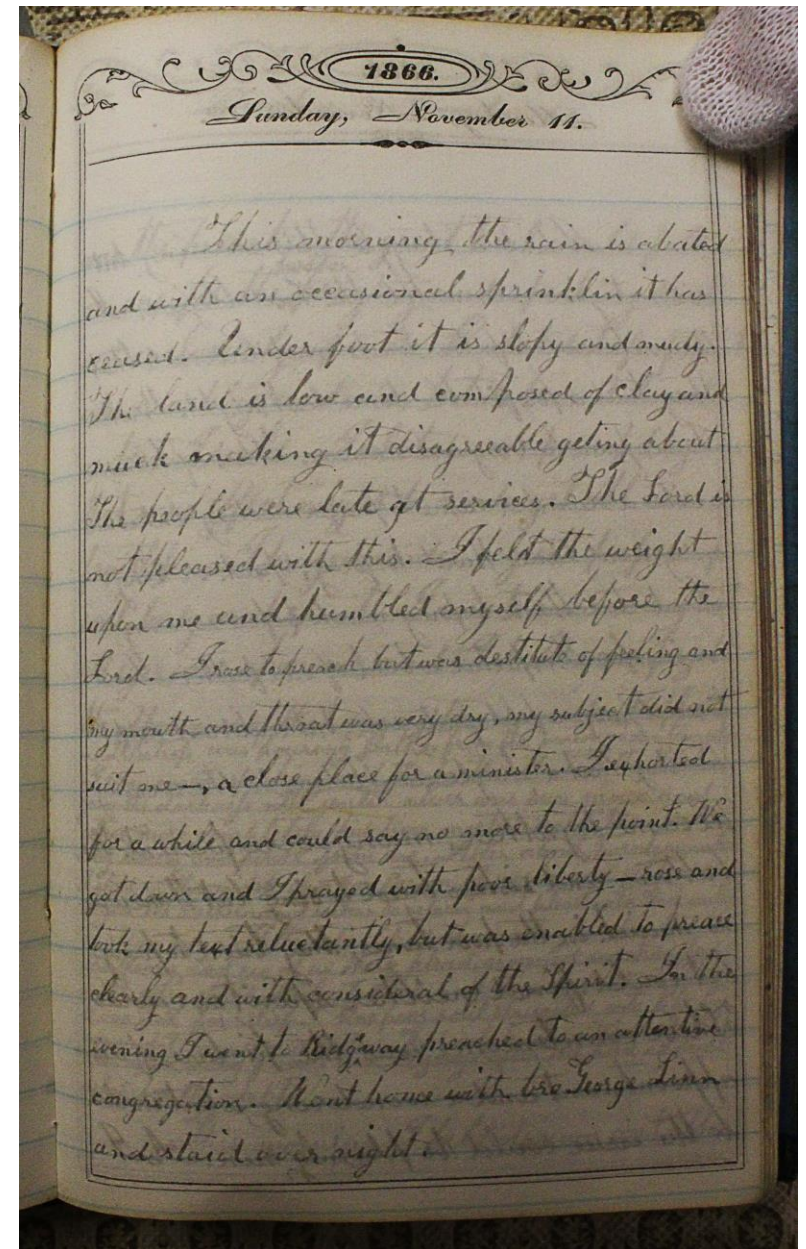 1866.
Sunday, November 11.
This morning the rain is abated
and with an occasional sprinklin it has
ceased. Under foot it is slopy and mudy.
The land is low and composed of clay and
muck making it disagreeable geting about
The people were late at services. The Lord is
not pleased with this. I felt the weight
upon me and humbled myself before the
Lord. I rose to preach but was destitute of feeling and
my mouth and throat was very dry, my subject did not
suit me—, a close place for a minister. I exhorted
for a while and could say no more to the point. We
got down and I prayed with poor liberty — rose and
took my text reluctantly, but was enabled to preace
clearly and with consideral of the Spirit. In the
evening I went to Ridgeway preached to an attentive
congregation. Went home with bro George Linn
and staid over night.